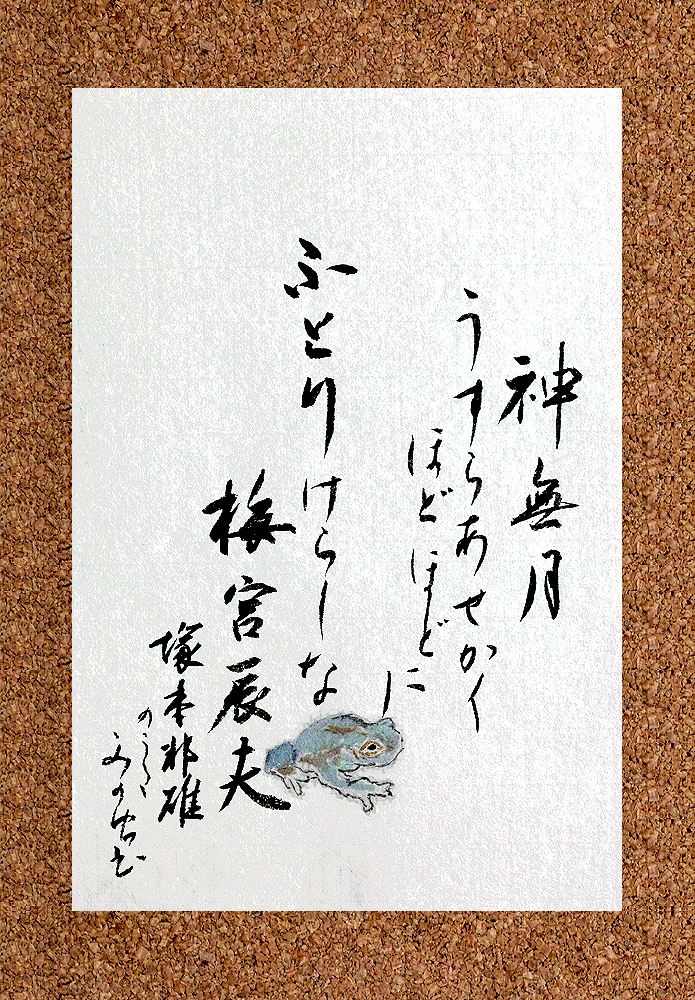 神無月
うすらあせかく
ほどほどに
ふとりけらしな
梅宮辰夫
塚本邦雄
のうた